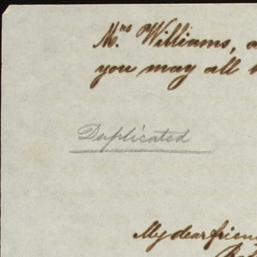 Mrs. Williams, a
you may all
Duplicated
My dear frien